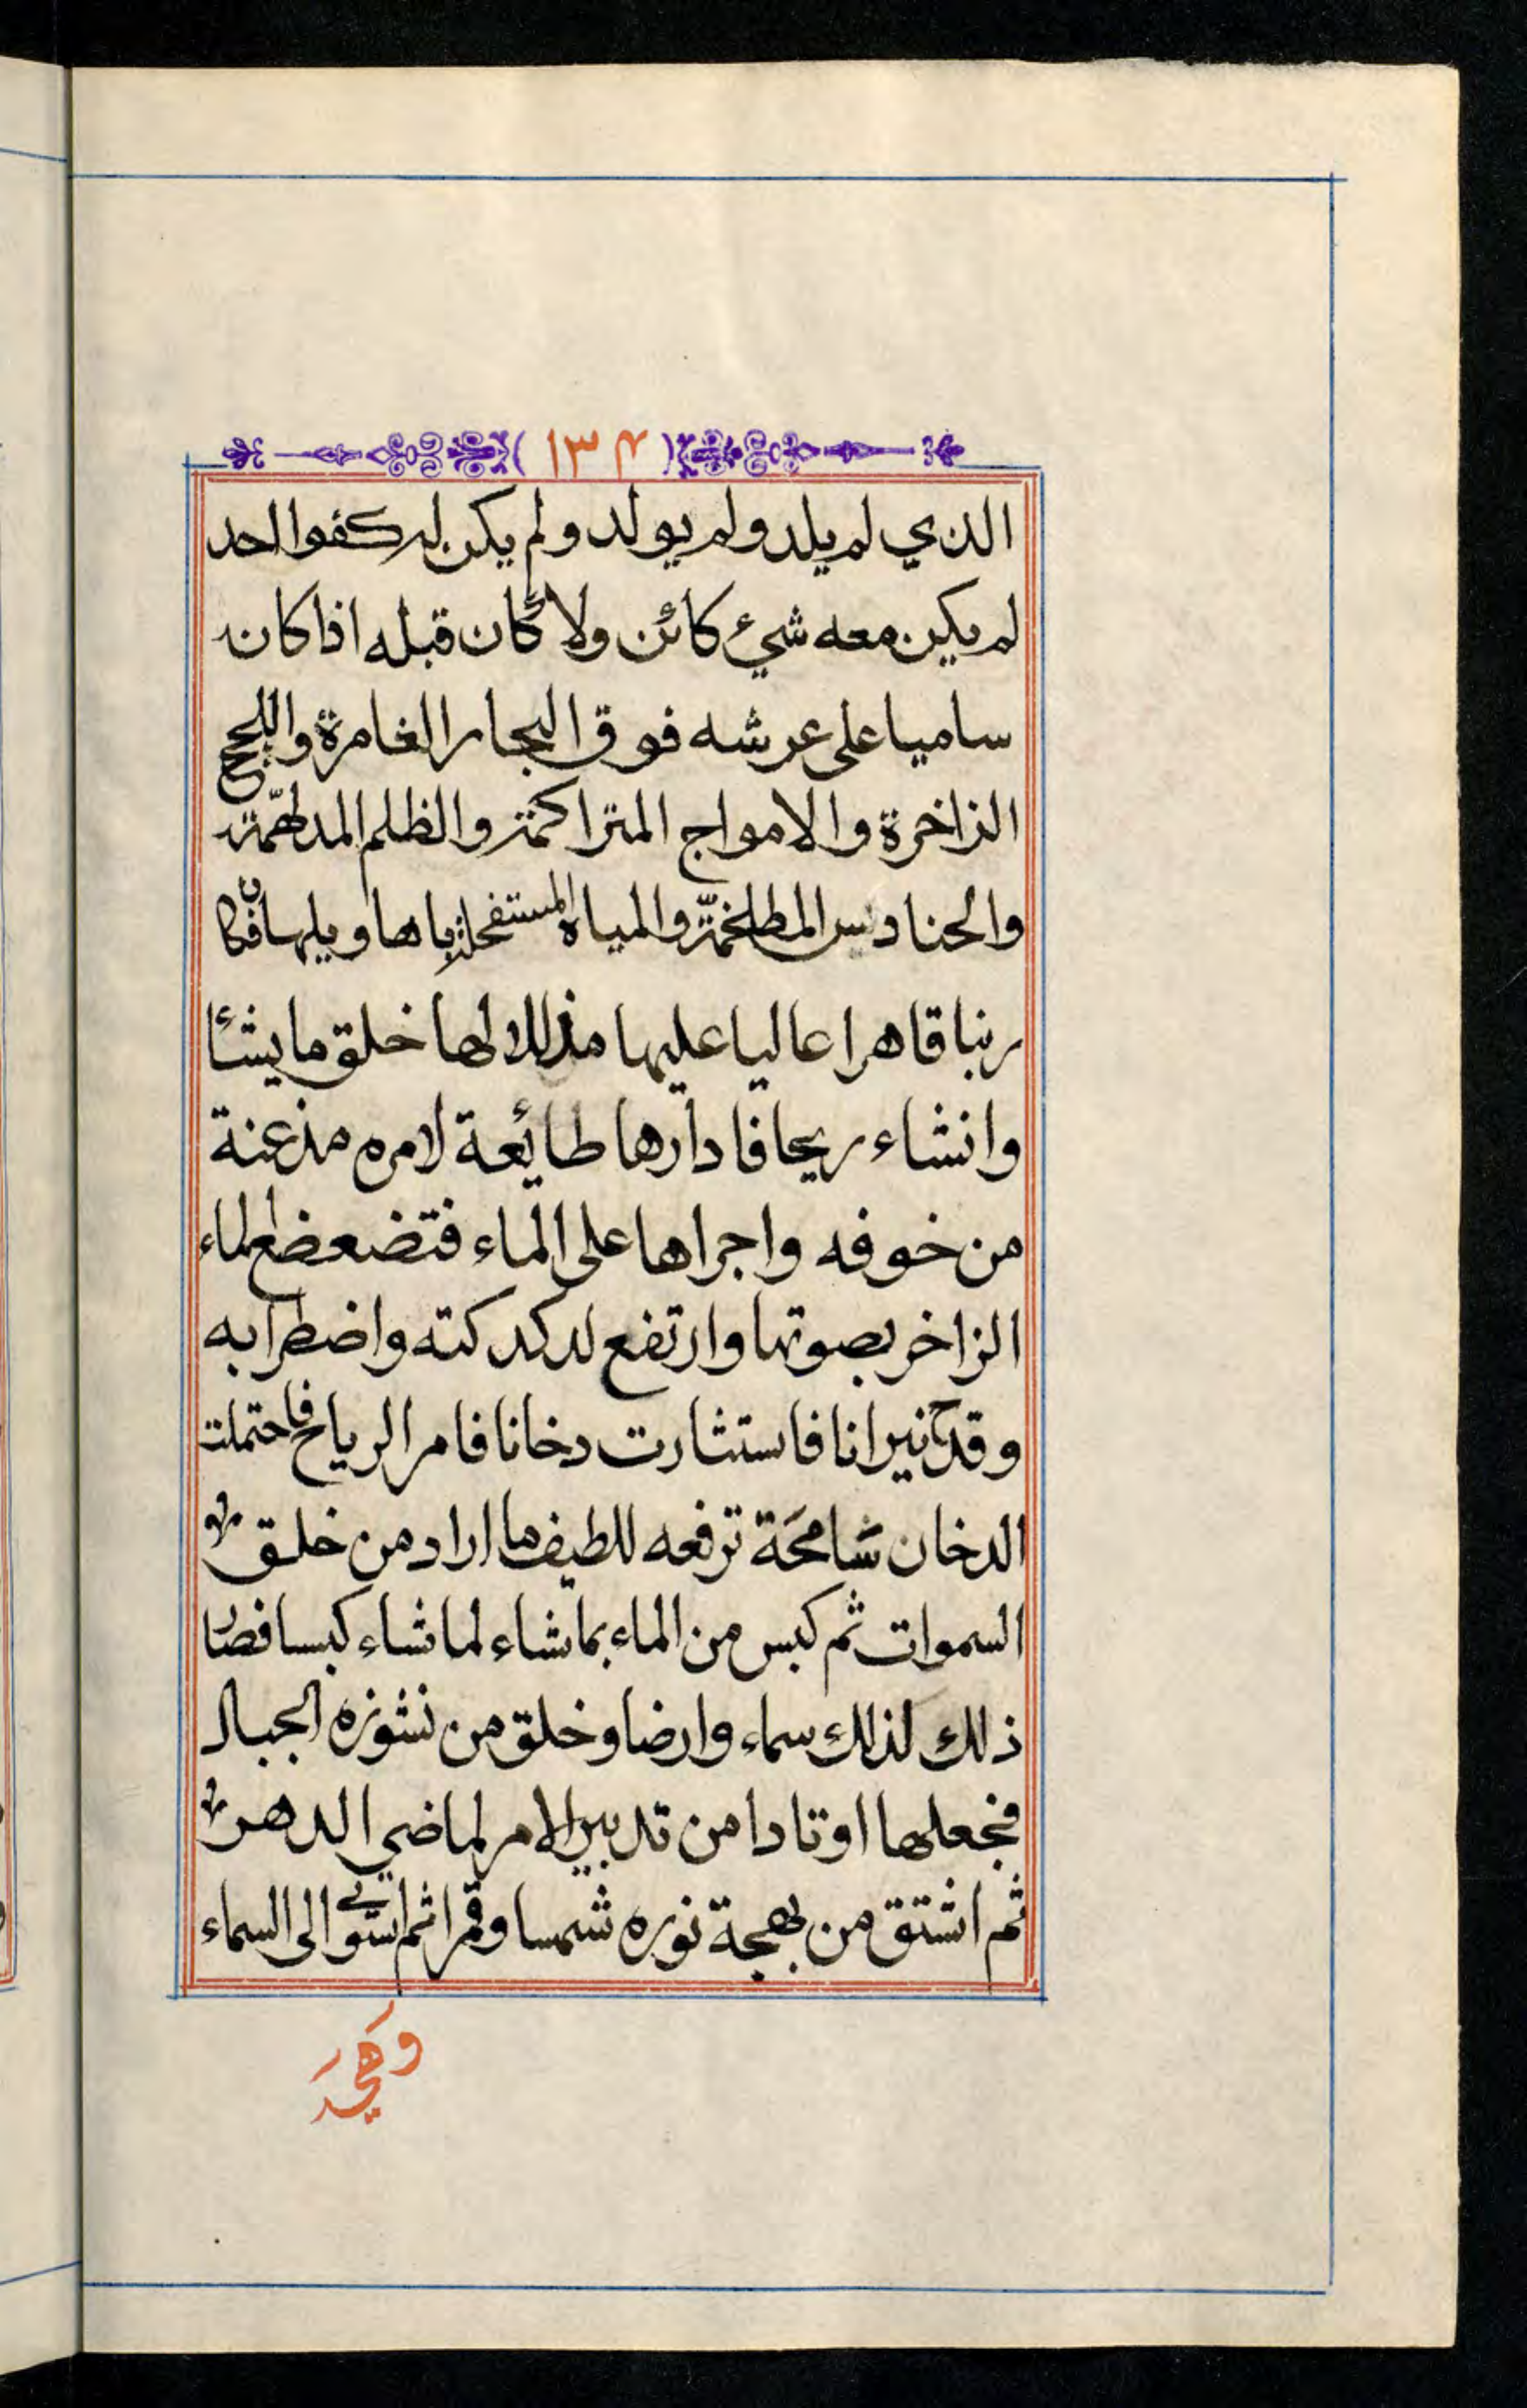 ١٣٤
الذي لم يلد ولم يولد ولم يكن له كفوا احد
لم يكن معه شيء كائن ولا كان قبله اذا كان
ساميا على عرشه فوق البحار الغامرة واللجج
الزاخرة والامواج المتراكمة والظلم المدلهمّة
والحنادس المطلخمّة والمياه المستفحلة باها ويلها فكان
ربنا قاهرا عاليا عليها مذللا لها خلق ما يشأ
وانشاء ريحا فادارها طائعة لامره مذعنة
من خوفه واجراها على الماء فتضعضع الماء
الزاخر بصوتها وارتفع لدكدكته واضطرابه
وقدح نيرانا فاستثارت دخانا فامر الرياح فاحتملت
الدخان شامخة ترفعه للطيف ما اراد من خلق
السموات ثم كبس من الماء بما شاء لما شاء كبسا فصار
ذلك لذلك سماء وارضا وخلق من نشوزه الجبال
فجعلها اوتادا من تدبير الامر لماضي الدهر
ثم اشتق من بهجة نوره شمسا وقمرا ثم استوى الى السماء
وهي